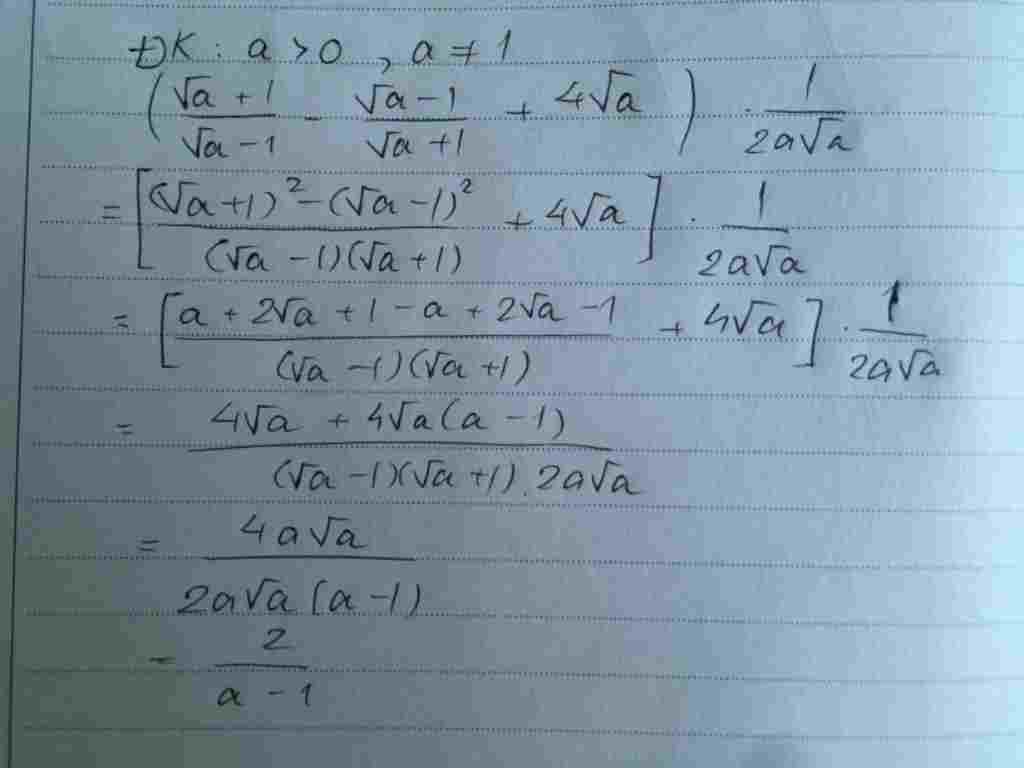 ĐK: a > 0, a ≠ 1
(\frac{√a + 1}{√a - 1} - \frac{√a - 1}{√a + 1} + 4√a) · \frac{1}{2a√a}
= [\frac{(√a + 1)² - (√a - 1)²}{(√a - 1)(√a + 1)} + 4√a] · \frac{1}{2a√a}
= [\frac{a + 2√a + 1 - a + 2√a - 1}{(√a - 1)(√a + 1)} + 4√a] · \frac{1}{2a√a}
= \frac{4√a + 4√a(a - 1)}{(√a - 1)(√a + 1).2a√a}
= \frac{4a√a}{2a√a(a - 1)}
= \frac{2}{a - 1}